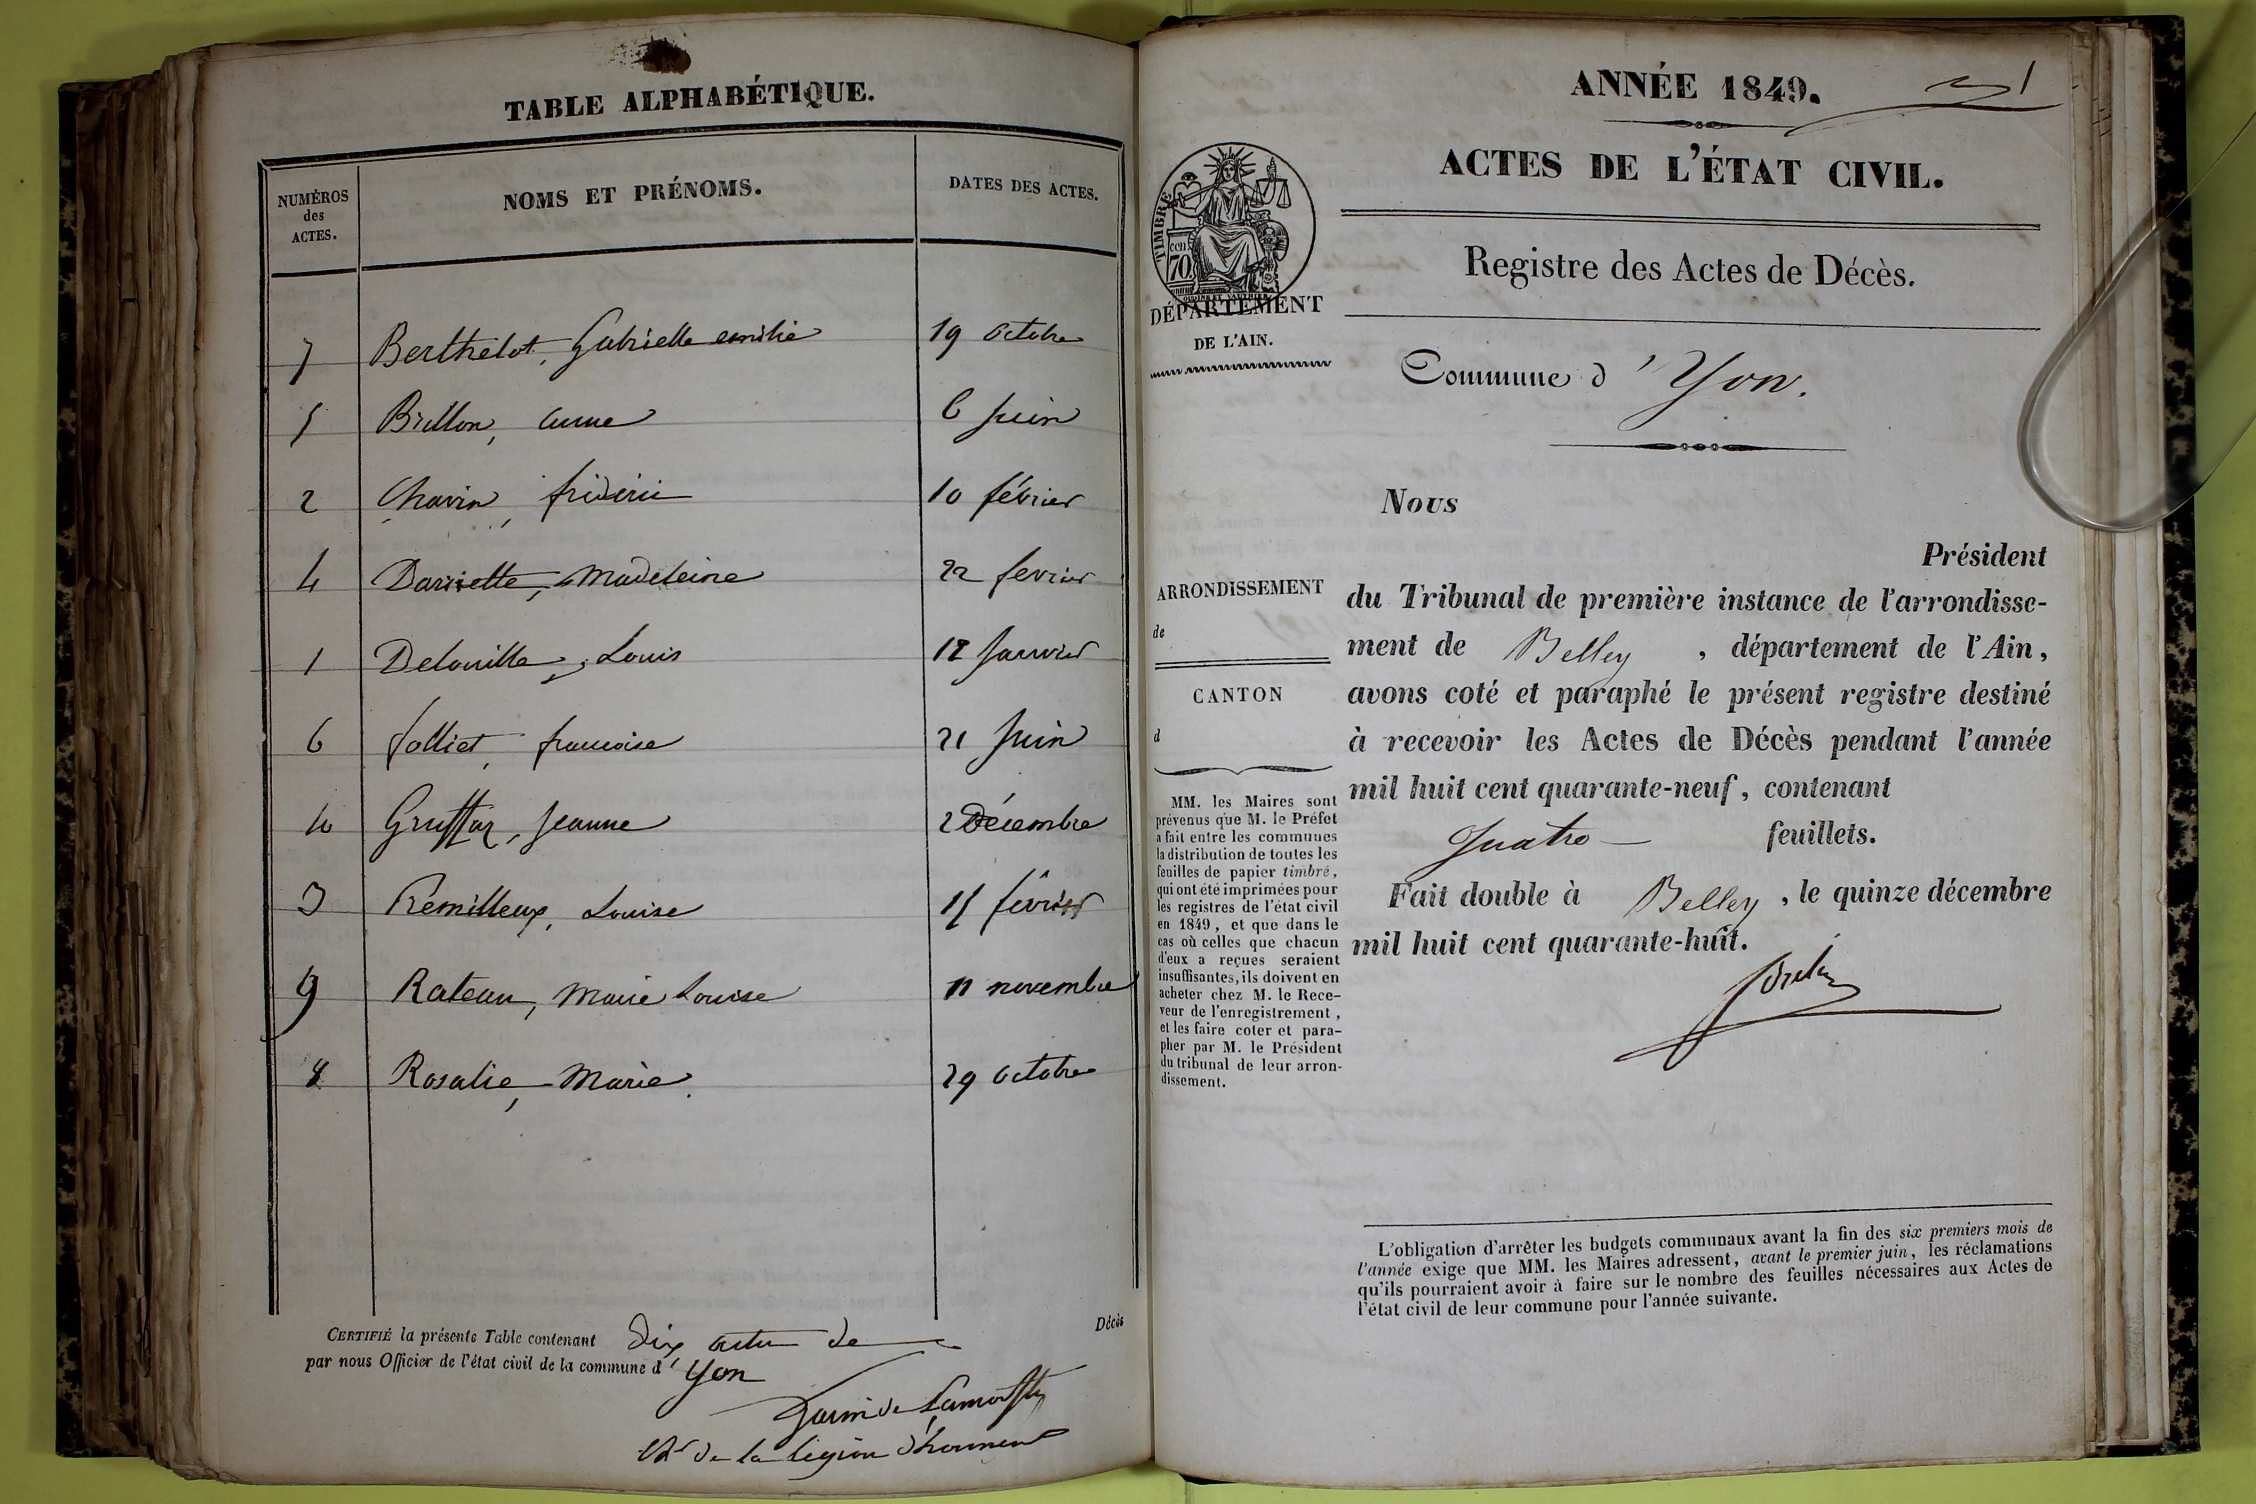 TABLE ALPHABÉTIQUE.
NUMÉROS
des
ACTES.
NOMS ET PRÉNOMS.
DATES DES ACTES.
7 Berthelot, Gabrielle emilie 19 octobre
5 Brillon, anne 6 juin
2 Chavin, fridéric 10 février
4 Darriette, Madeleine 22 fevrier
1 Delouille, Louis 12 Janvier
6 folliet, francoise 21 Juin
10 Jeanne 2 Décembre
3 Remilleux, Louise 15 février
9 Rateau, Marie Louise 11 novembre
8 Rosalie, Marie. 29 octobre
CERTIFIÉ la présente Table contenant dix actes de Décès
par nous Officier de l'état civil de la commune d' Yon
de la légion d'honneur
ANNÉE 1849.
1
ACTES DE L'ÉTAT CIVIL.
TIMBRE
cen
70
DÉPARTEMENT
DE L'AIN.
Registre des Actes de Décès.
Commune d' Yon.
ARRONDISSEMENT
de
CANTON
d
MM. les Maires sont
prévenus que M. le Préfet
a fait entre les communes
la distribution de toutes les
feuilles de papier timbré,
qui ont été imprimées pour
les registres de l'état civil
en 1849, et que dans le
cas où celles que chacun
d'eux a reçues seraient
insuffisantes, ils doivent en
acheter chez M. le Rece-
veur de l'enregistrement,
et les faire coter et para-
pher par M. le Président
du tribunal de leur arron-
dissement.
Nous
Président
du Tribunal de première instance de l'arrondisse-
ment de Belley, département de l'Ain,
avons coté et paraphé le présent registre destiné
à recevoir les Actes de Décès pendant l'année
mil huit cent quarante-neuf, contenant
quatre feuillets.
Fait double à Belley, le quinze décembre
mil huit cent quarante-huit.
L'obligation d'arrêter les budgets communaux avant la fin des six premiers mois de
l'année exige que MM. les Maires adressent, avant le premier juin, les réclamations
qu'ils pourraient avoir à faire sur le nombre des feuilles nécessaires aux Actes de
l'état civil de leur commune pour l'année suivante.